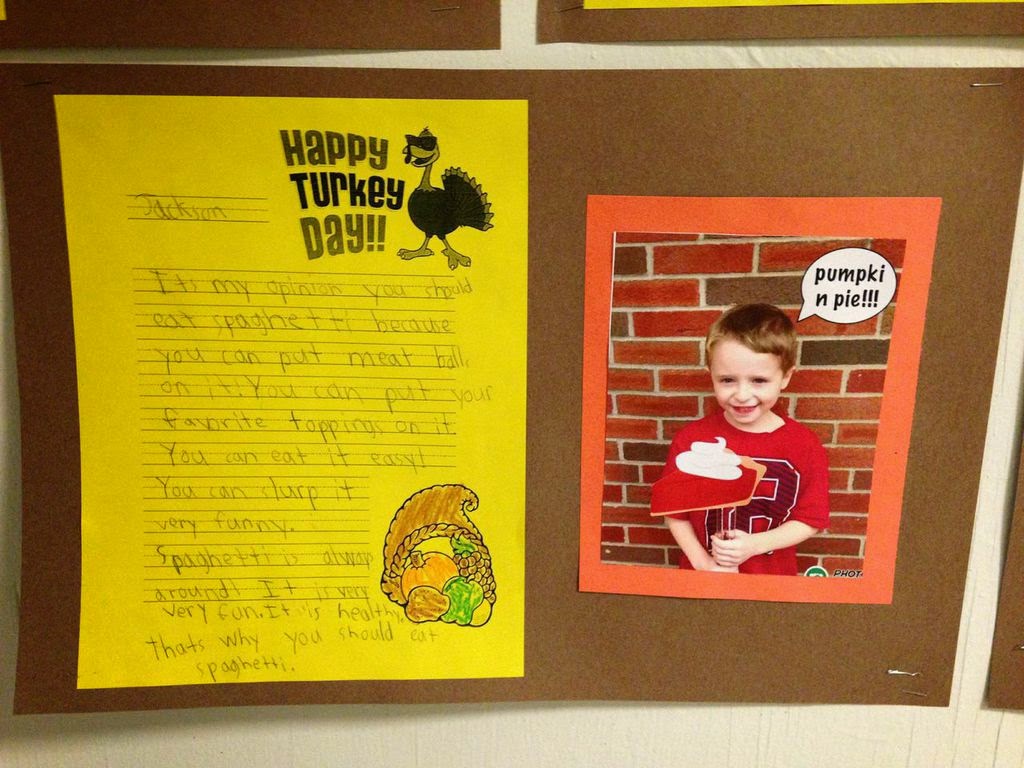 Happy
Turkey
Day!!
Jackson
Its my opinion you should
eat spaghetti because
you can put meat balls
on it! You can put your
favorite toppings on it.
You can eat it easy!
You can slurp it
very funny.
Spaghetti is always
around! It is very
very fun. It is healthy.
thats why you should eat
spaghetti.
pumpki
n pie!!!
PHOT